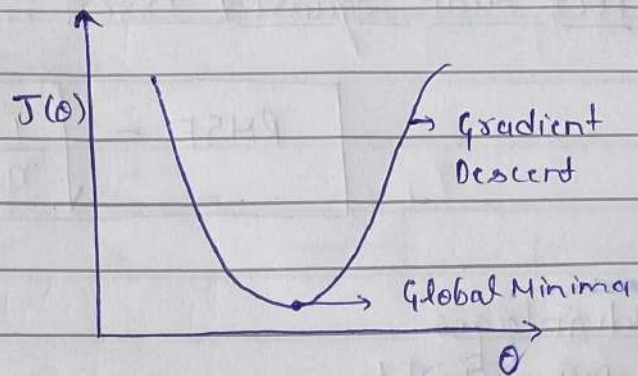 J(θ)
Gradient
Descent
Global Minima
θ